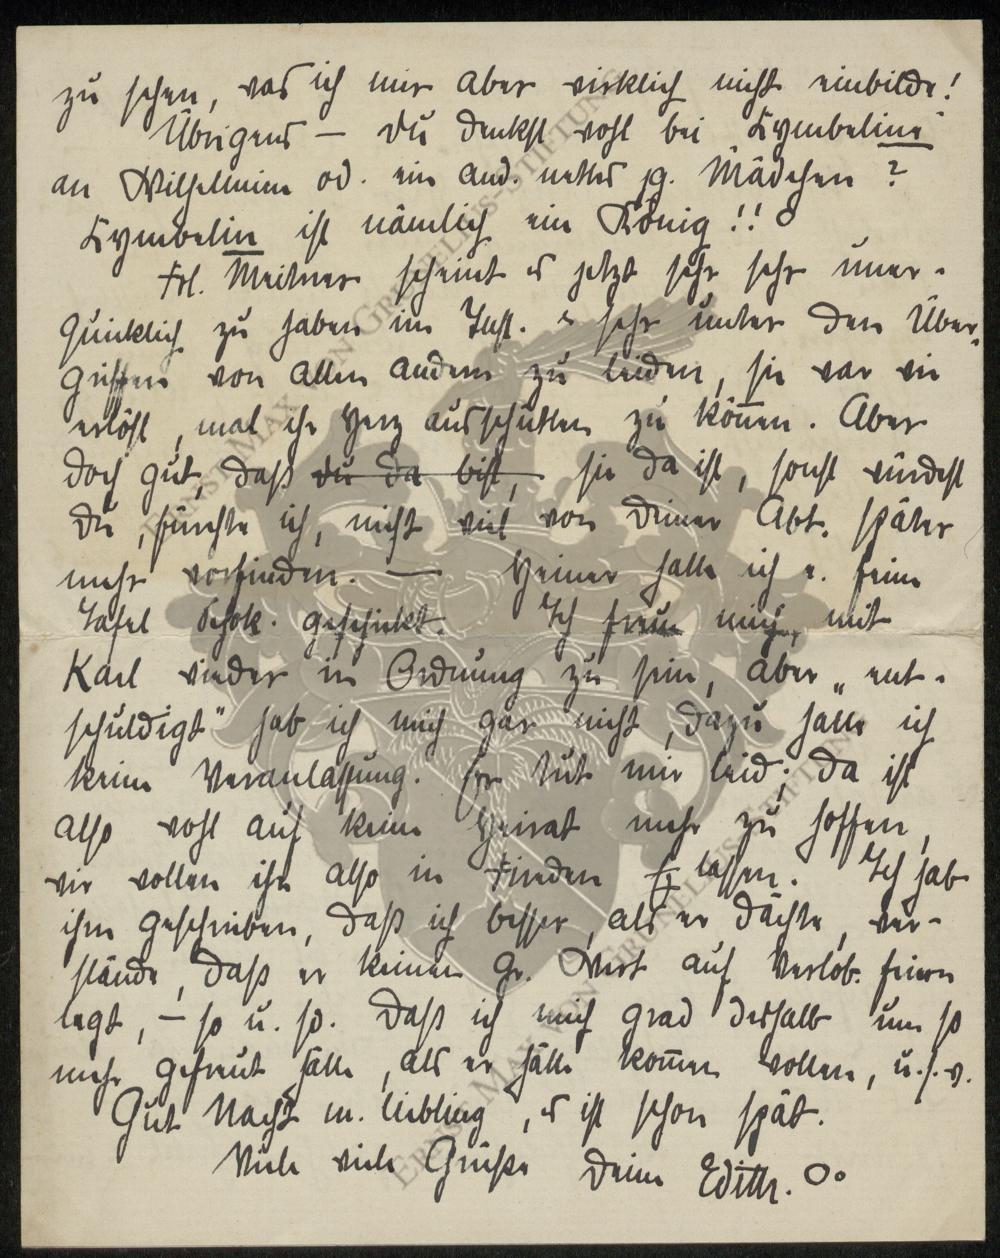 zu sehen, was ich mir aber wirklich nicht einbilde!
Übrigens – du denkst wohl bei Kymbeline
an Wilhelmine od. ein and. nettes jg. Mädchen?
Kymbelin ist nämlich ein König!!
Frl. Meitner scheint es jetzt sehr sehr uner-
quicklich zu haben im Inst. & sehr unter den Über-
griffen von allen andern zu leiden, sie war wie
erlöst, mal ihr Herz ausschütten zu können. Aber
doch gut, daß du da bist, sie da ist, sonst würdest
du, fürchte ich, nicht viel von deiner Abt. später
mehr vorfinden. — Heiner hatte ich e. feine
Tafel Schok. geschickt. Ich freue mich, mit
Karl wieder in Ordnung zu sein, aber „ent-
schuldigt" hab ich mich gar nicht, dazu hatte ich
keine Veranlassung. Er tut mir leid; da ist
also wohl auf keine Heirat mehr zu hoffen,
wir wollen ihn also in Frieden lassen. Ich hab
ihm geschrieben, daß ich besser, als er dächte, ver-
stände, daß er keinen gr. Wert auf Verlob. feiern
legt, – so u. so. Daß ich mich grad deshalb um so
mehr gefreut hätte, als er hätte kommen wollen, u.s.w.
Gut Nacht m. Liebling, es ist schon spät.
Viele viele Grüße Deine Edith.
ERNST MAX VON GRUNELIUS-STIFTUNG
ERNST MAX VON GRUNELIUS-STIFTUNG